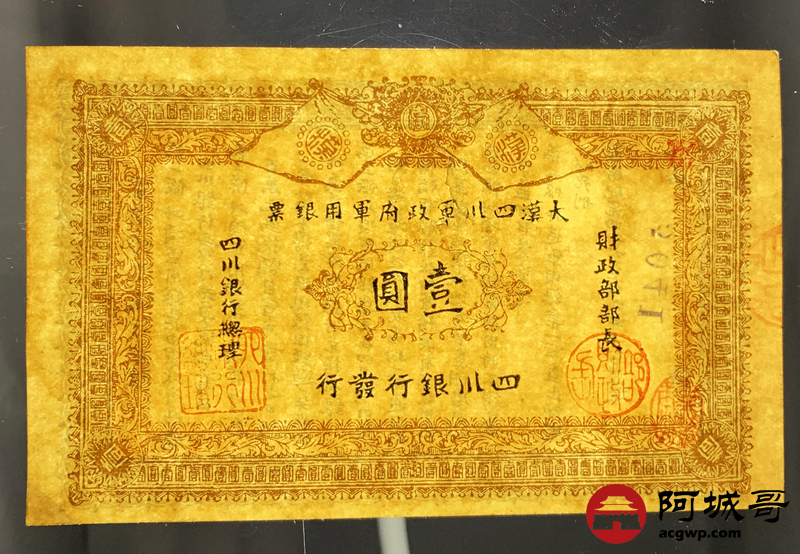 大漢四川軍政府軍用銀票
財政部部長
壹圓
四川銀行總理
四川銀行發行
5041
阿城哥
acgwp.com